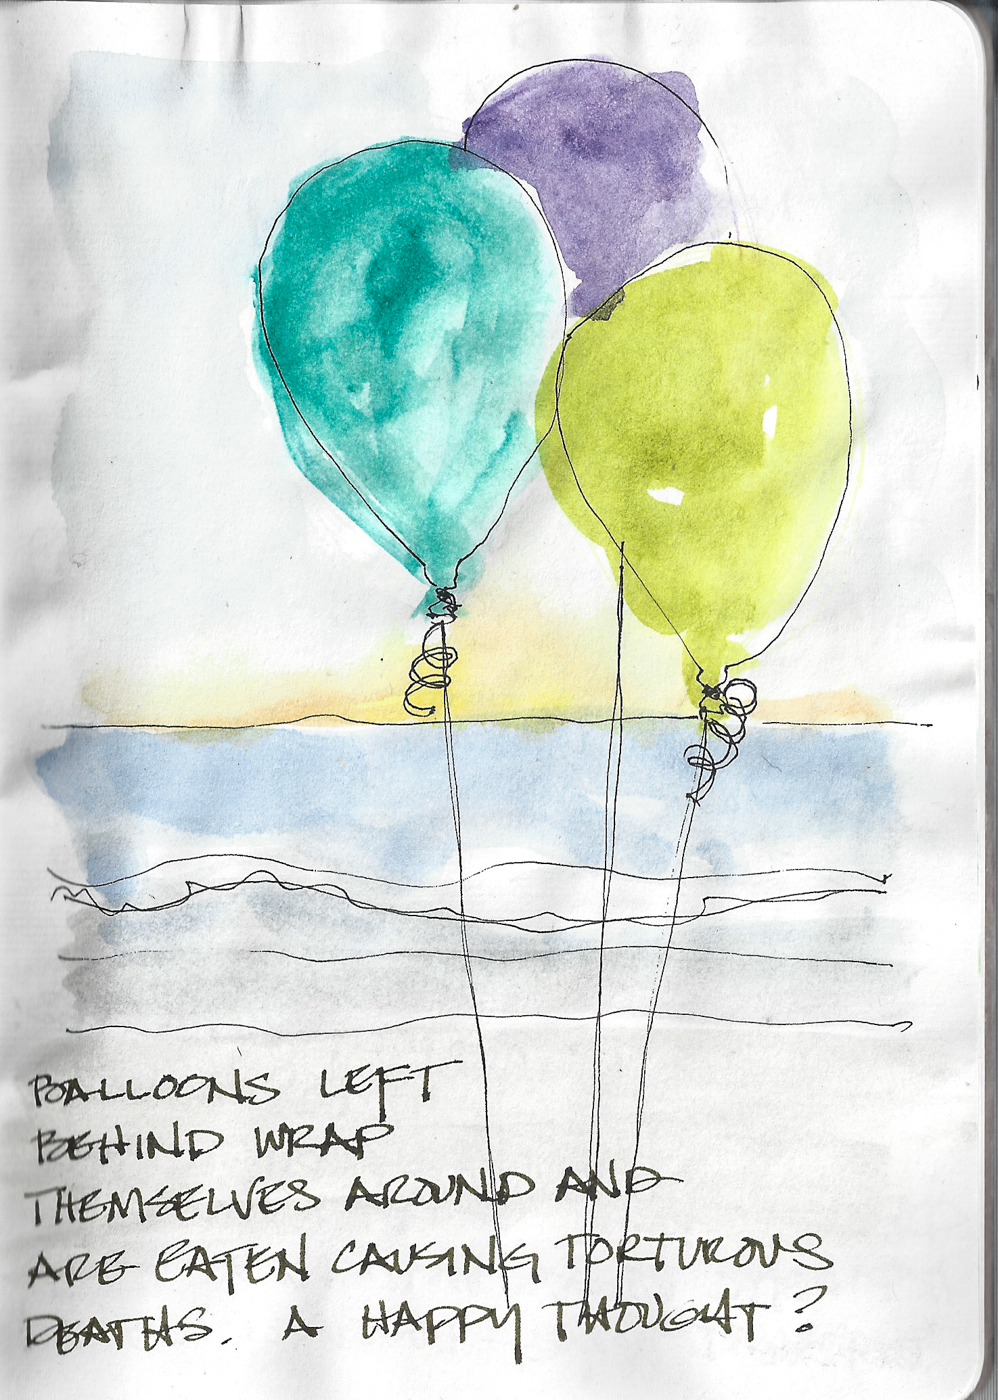 BALLOONS LEFT
BEHIND WRAP
THEMSELVES AROUND AND
ARE EATEN CAUSING TORTUROUS
DEATHS. A HAPPY THOUGHT?